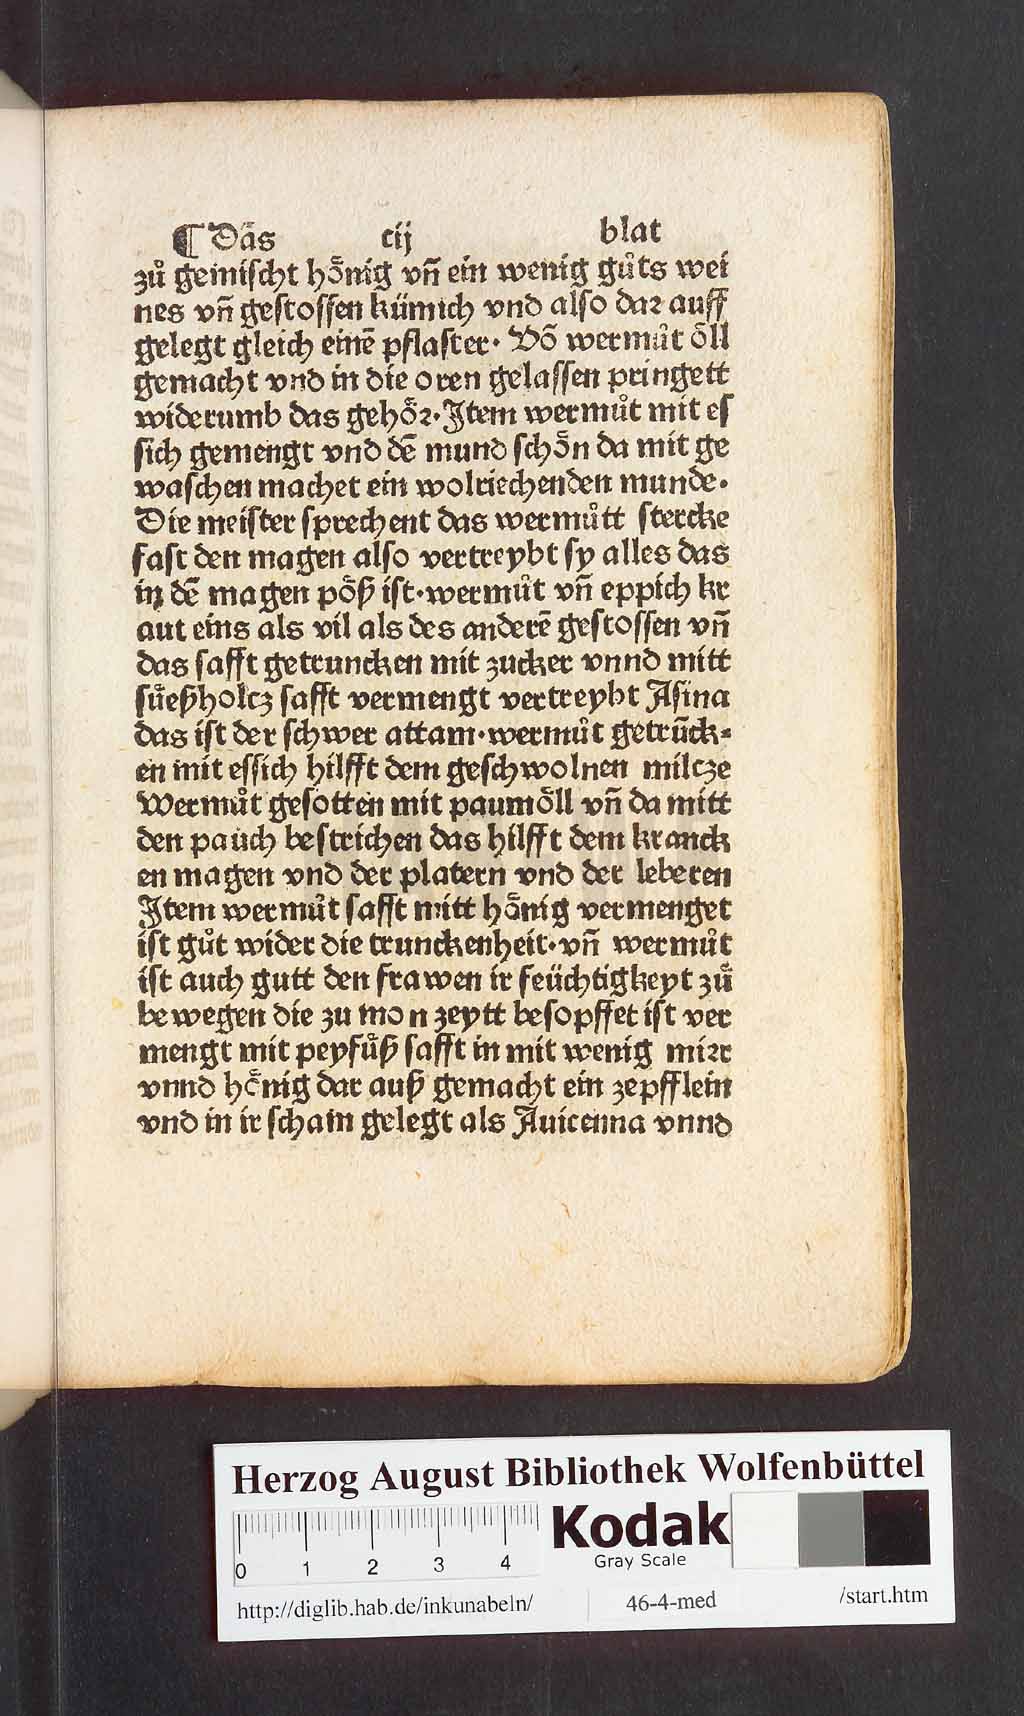 ¶ Das cij blat
zů gemischt hoͤnig vñ ein wenig gůts wei
nes vñ gestossen kümich vnd also dar auff
gelegt gleich einẽ pflaster· Võ wermůt oͤll
gemacht vnd in die oren gelassen pringett
widerumb das gehoͤr· Item wermůt mit es
sich gemengt vnd dẽ mund schoͤn da mit ge
waschen machet ein wolriechenden munde·
Die meister sprechent das wermůtt stercke
fast den magen also vertreybt sy alles das
in dẽ magen poͤß ist· wermůt vñ eppich kr
aut eins als vil als des anderẽ gestossen vñ
das safft getruncken mit zucker vnnd mitt
suͤeßholcz safft vermengt vertreybt Asina
das ist der schwer attam· wermůt getrũck⸗
en mit essich hilfft dem geschwolnen milcze
Wermůt gesotten mit paumoͤll vñ da mitt
den pauch bestrichen das hilfft dem kranck
en magen vnd der platern vnd der leberen
Item wermůt safft mitt hoͤnig vermenget
ist gůt wider die trunckenheit· vñ wermůt
ist auch gutt den frawen ir feüchtigkeyt zuͤ
bewegen die zu mon zeytt besopffet ist ver
mengt mit peyfuͤß safft in mit wenig mirr
vnnd hoͤnig dar auß gemacht ein zepfflein
vnd in ir scham gelegt als Auicenna vnnd
Herzog August Bibliothek Wolfenbüttel
0 1 2 3 4
Kodak
Gray Scale
http://diglib.hab.de/inkunabeln/ 46-4-med /start.htm